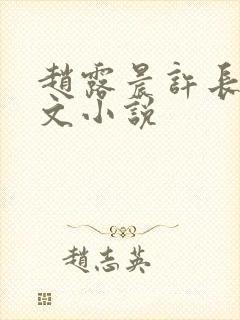 趙露晨許長
文小説
趙志英